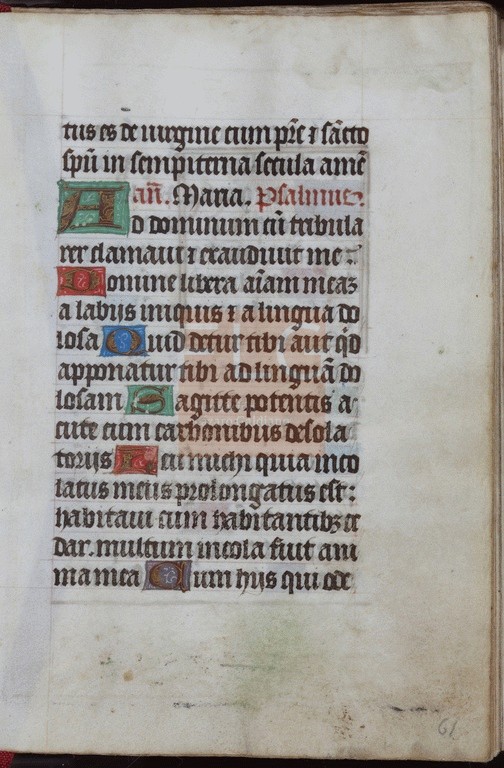 tus es de uirgine cum p̄re ⁊ sācto
spū in sempiterna secula amē
añ. Maria. Psalmus.
Ad dominum cū tribula
rer clamaui ⁊ exaudiuit me :
Domine libera aīam meaꝫ
a labijs iniquis ⁊ a lingua do
losa Quid detur tibi aut qͥd
apponatur tibi ad linguā do
losam Sagitte potentis a
cute cum carbonibus desola
torijs Heu michi quia inco
latus meus prolongatus est :
habitaui cum habitantibꝫ ce
dar. multum incola fuit ani
ma mea Cum hijs qui ode
61